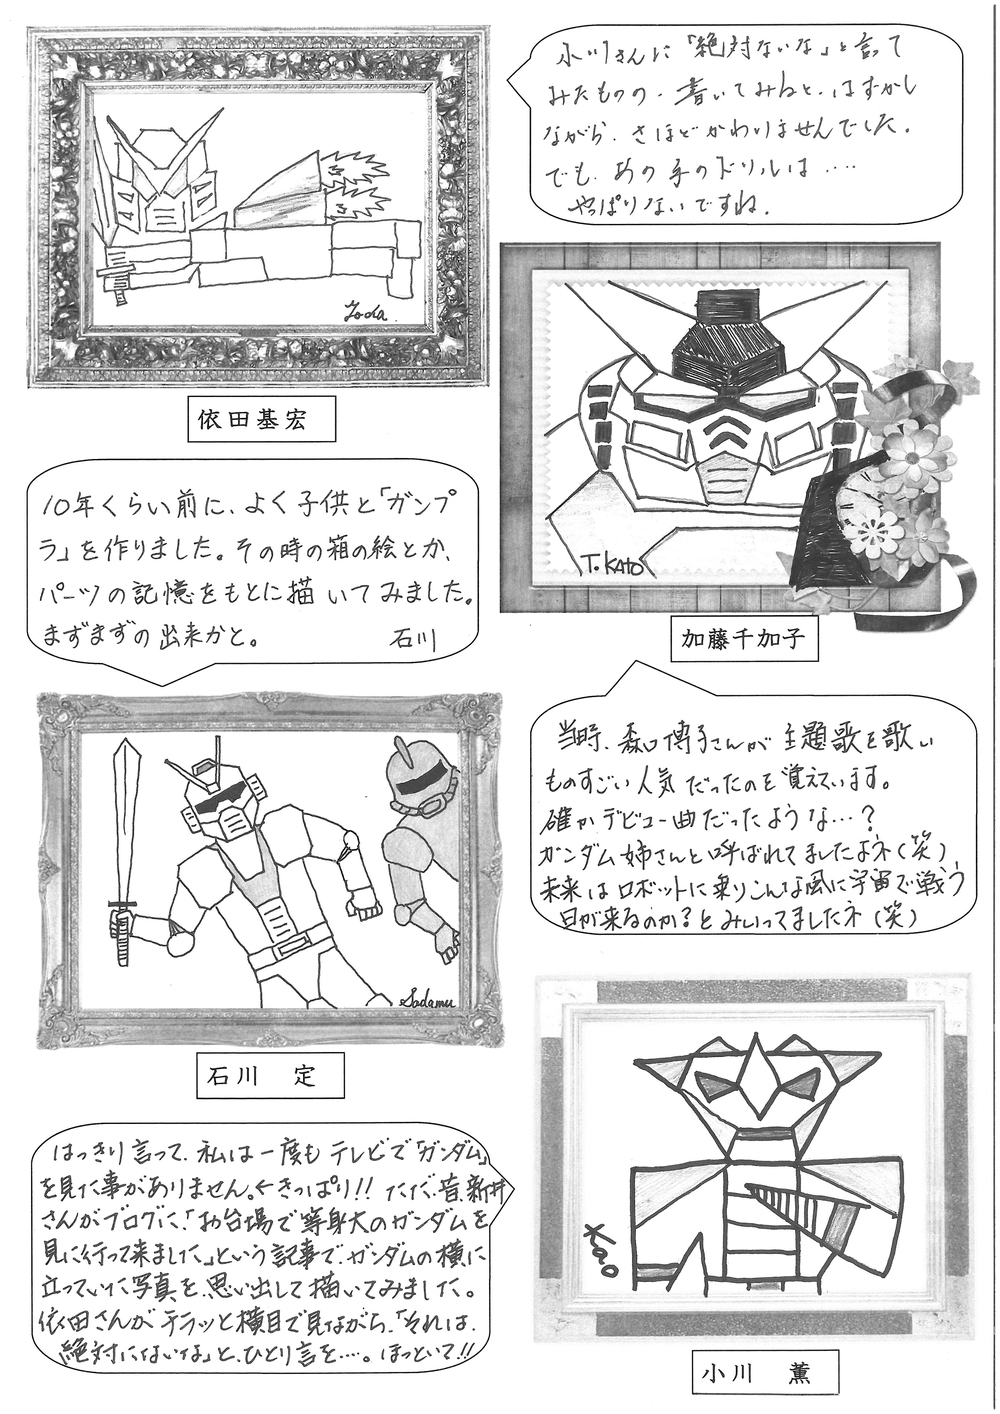 小川さんに「絶対ないな」と言って
みたものの、書いてみると、はずかし
ながら、さほどかわりませんでした。
でも、あの手のドリルは....
やっぱりないですね。
Yoda
依田基宏
T.KATO
加藤千加子
10年くらい前に、よく子供と「ガンプ
ラ」を作りました。その時の箱の絵とか、
パーツの記憶をもとに描いてみました。
まずまずの出来かと。 石川
Sadamu
石川 定
当時、森口博子さんが主題歌を歌い
ものすごい人気だったのを覚えています。
確かデビュー曲だったような…?
ガンダム姉さんと呼ばれてましたよネ(笑)
未来はロボットに乗りこんな風に宇宙で戦う
日が来るのか?とみいってましたネ(笑)
はっきり言って、私は一度もテレビで「ガンダム」
を見た事がありません。←きっぱり!! ただ、昔、新井
さんがブログに、「お台場で等身大のガンダムを
見に行って来ました」という記事で、ガンダムの横に
立っていた写真を、思い出して描いてみました。
依田さんがチラッと横目で見ながら、「それは、
絶対にないな」と、ひとり言を....。ほっといて!!
Kao
小川 薫